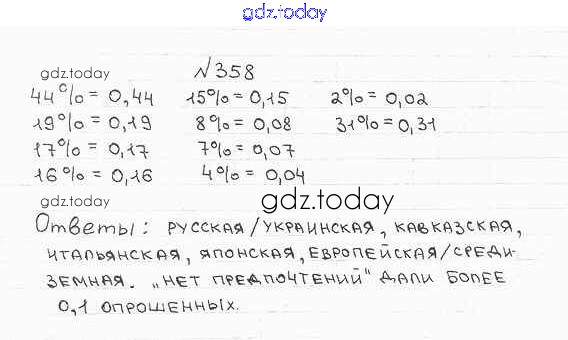 gdz.today
№358
gdz.today
44% = 0,44 15% = 0,15 2% = 0,02
19% = 0,19 8% = 0,08 31% = 0,31
17% = 0,17 7% = 0,07
16% = 0,16 4% = 0,04
gdz.today
gdz.today
Ответы: русская/украинская, кавказская,
итальянская, японская, европейская/среди-
земная. „Нет предпочтений" дали более
0,1 опрошенных.